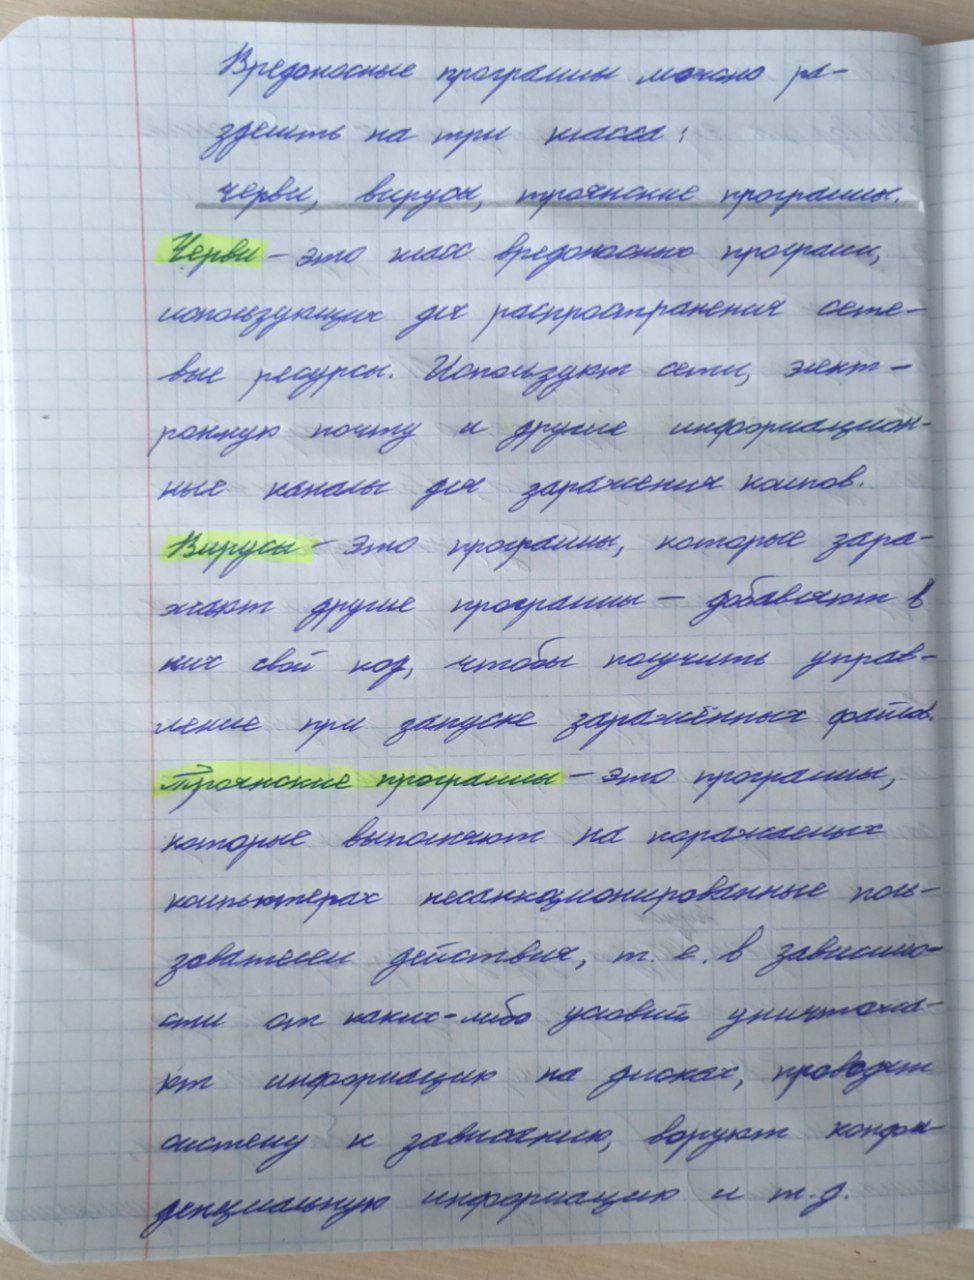 Вредоносные программы можно ра-
зделить на три класса:
черви, вирусы, троянские программы.
Черви – это класс вредоносных программ,
использующих для распространения сете-
вые ресурсы. Используют сети, элект-
ронную почту и другие информацион-
ные каналы для заражения компов.
Вирусы – это программы, которые зара-
жают другие программы – добавляют в
них свой код, чтобы получить управ-
ление при запуске заражённых файлов.
Троянские программы – это программы,
которые выполняют на поражаемых
компьютерах несанкционированные поль-
зователем действия, т. е. в зависимо-
сти от каких-либо условий уничтожа-
ют информацию на дисках, проводят
систему к зависанию, воруют конфи-
денциальную информацию и т.д.